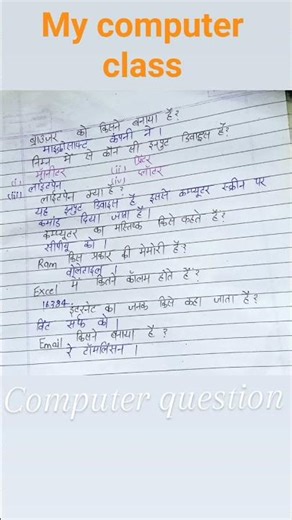 My computer
class
ब्राउजर को किसने बनाया है?
माइक्रोसाफ्ट कंपनी ने।
निम्न में से कौन सी इनपुट डिवाइस है?
(i) मॉनीटर (ii) प्रिंटर
(iii) लाईटपेन (iv) प्लॉटर
लाईटपेन क्या है?
यह इनपुट डिवाइस है, इससे कम्प्यूटर स्क्रीन पर
कमांड दिया जाता है।
कम्प्यूटर का मस्तिष्क किसे कहते है?
सीपीयू को।
Ram किस प्रकार की मेमोरी है?
वोलेटाइल
Excel में कितने कॉलम होते हैं?
16384
इंटरनेट का जनक किसे कहा जाता है?
विंट सर्फ को।
Email किसने बनाया है?
रे टॉमलिंसन।
Computer question